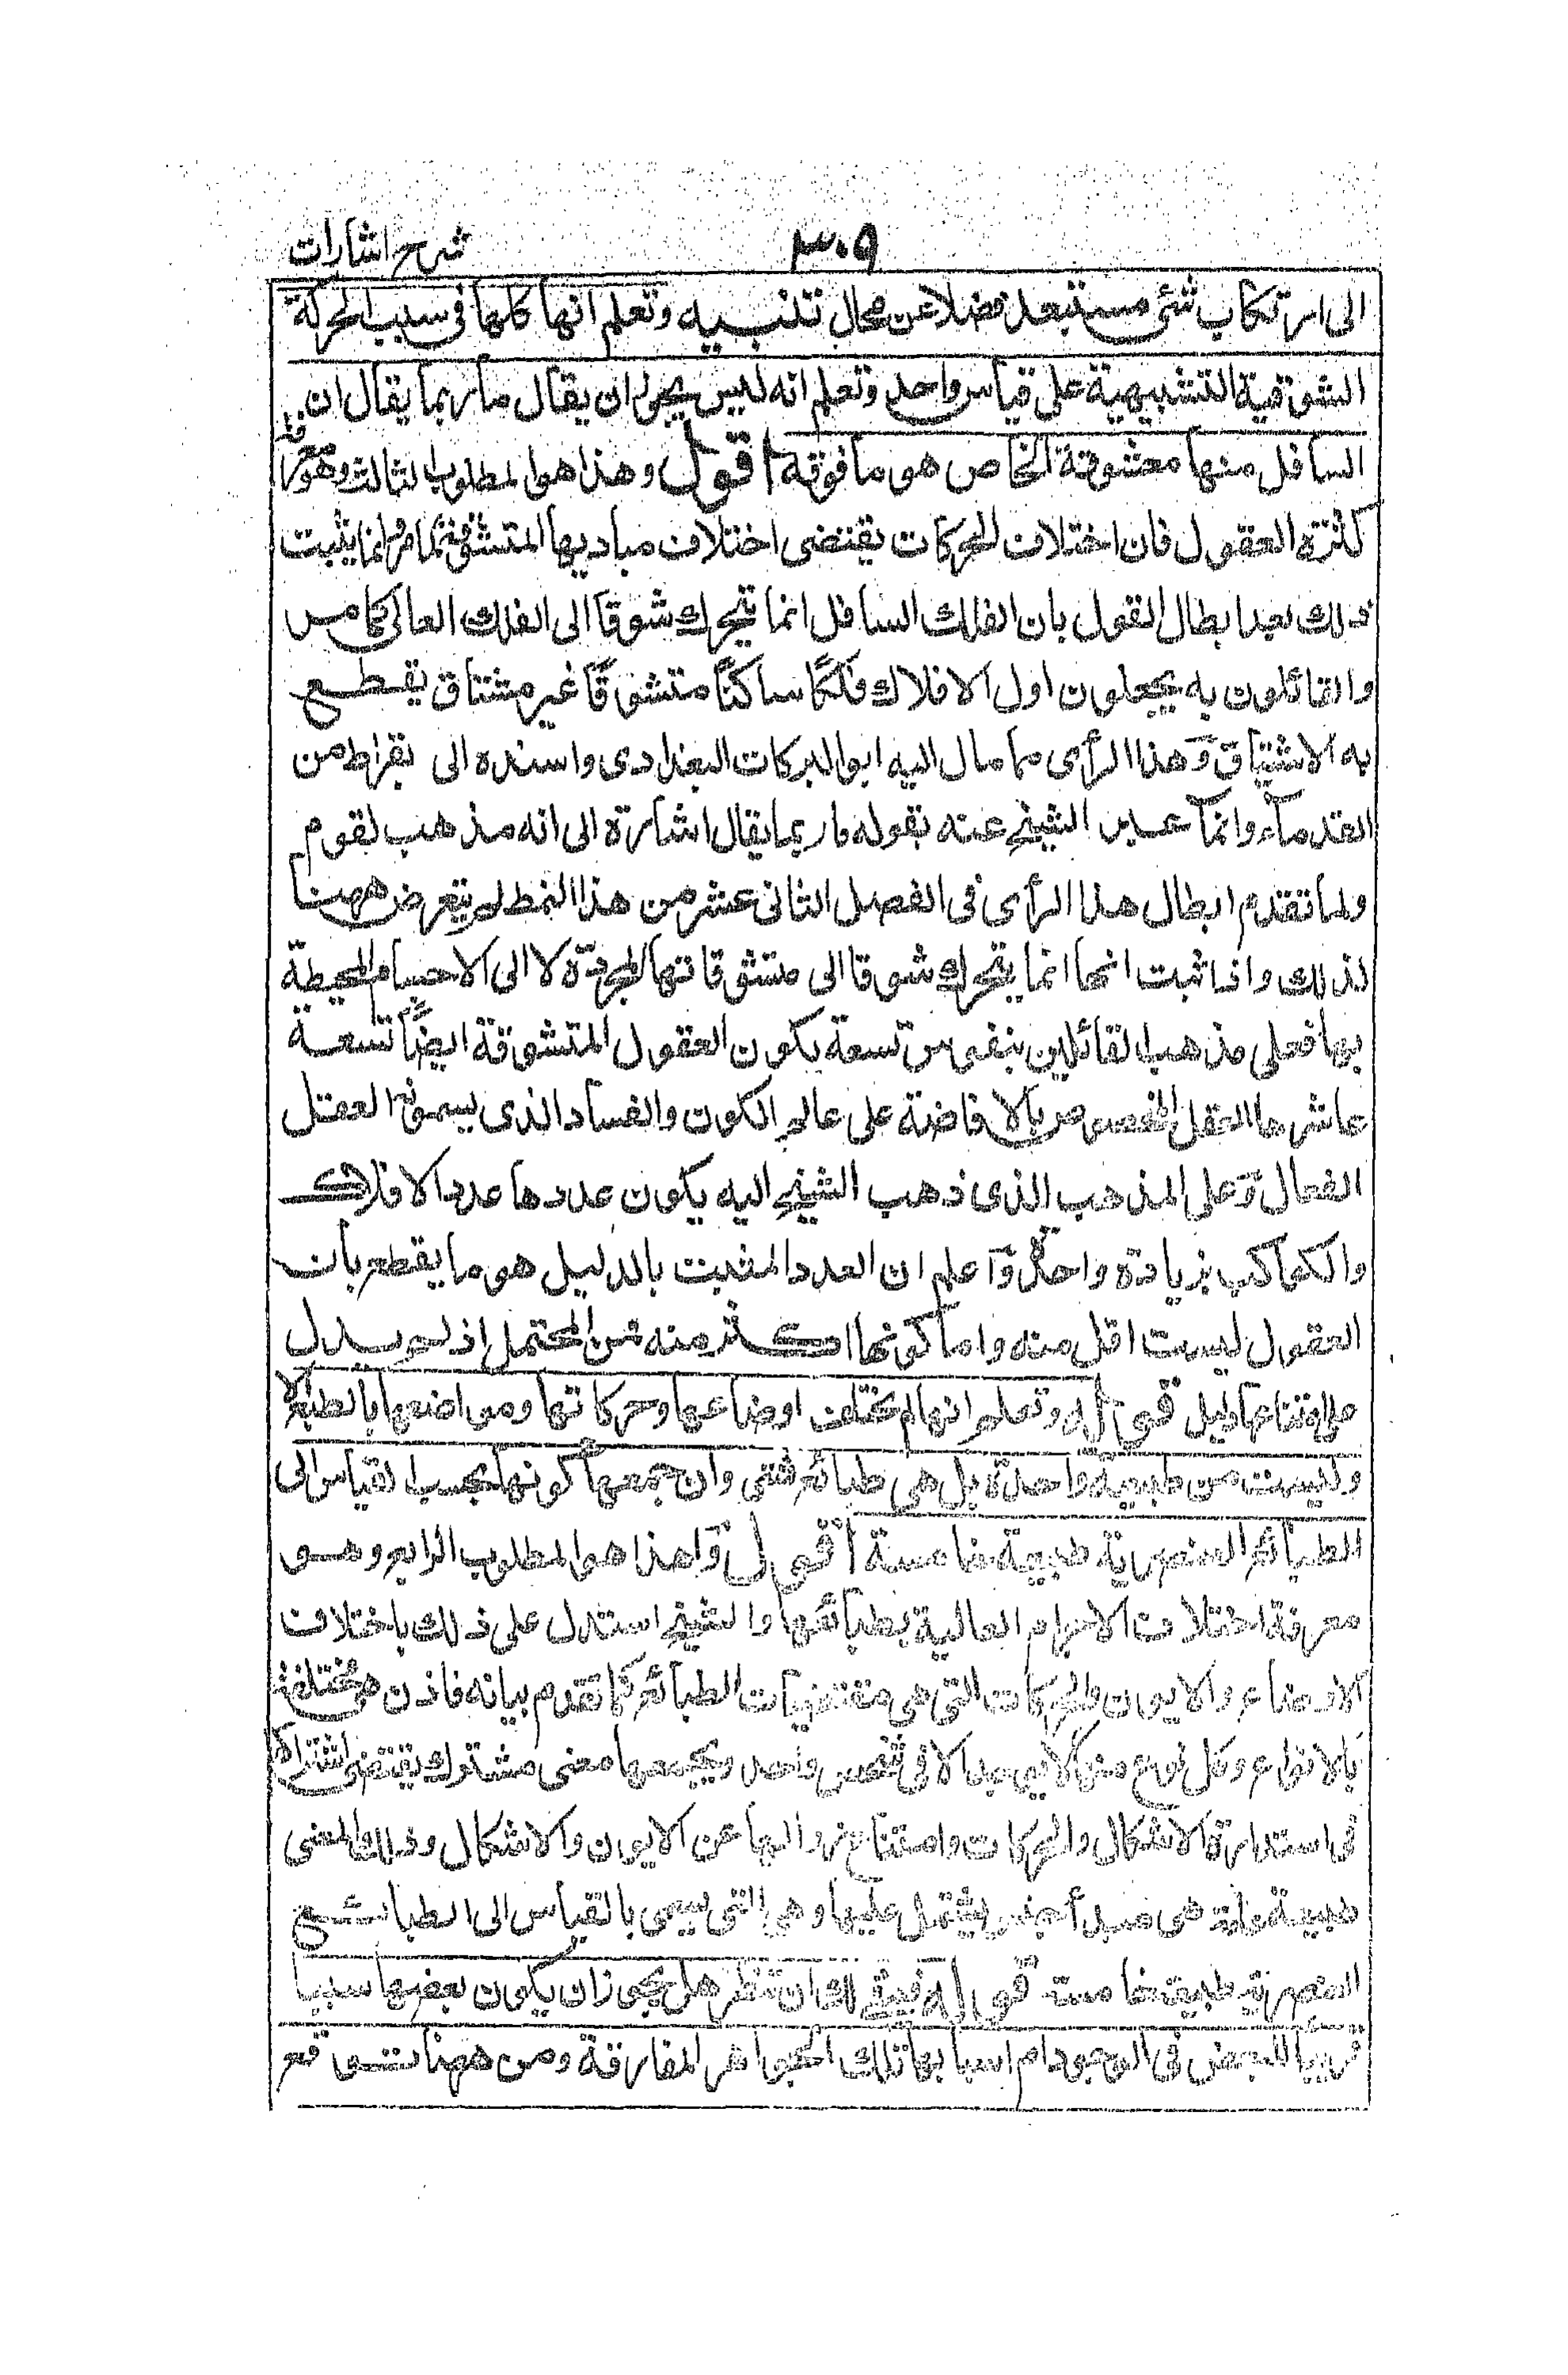 شرح اشارات
٣٠٩
الى ارتكاب شئ مستبعد فضلا عن محال تنبيه وتعلم انها كلها فى سبب الحركة
الشوقية التشبيهية على قياس واحد وتعلم انه ليس يجوز ان يقال ما ربما يقال ان
السافل منها معشوقة الخاص هو ما فوقه اقول وهذا هو المطلوب الثالث وهو معرفة
كثرة العقول فان اختلاف الحركات يقتضى اختلاف مباديها المتشوقة كما مر وانما يثبت
ذلك بعد ابطال القول بان الفلك السافل انما يتحرك شوقا الى الفلك العالى كما مر
والقائلون به يجعلون اول الافلاك فلكًا ساكنًا متشوقًا غير مشتاق يقطع
به الاشتياق وهذا الرأى مما مال اليه ابو البركات البغدادى واسنده الى بقراط من
القدمآء وانما عبر الشيخ عنه بقوله ما ربما يقال اشارة الى انه مذهب لقوم
ولما تقدم ابطال هذا الرأى فى الفصل الثانى عشر من هذا النمط لم يتعرض ههنا
لذلك واذا ثبت انها انما يتحرك شوقا الى متشوقاتها المجردة لا الى الاجسام المحيطة
بها فعلى مذهب القائلين بنفوس تسعة يكون العقول المتشوقة ايضًا تسعة
عاشرها العقل المخصوص بالافاضة على عالم الكون والفساد الذى يسمونه العقل
الفعال وعلى المذهب الذى ذهب الشيخ اليه يكون عددها عدد الافلاك
والكواكب بزيادة واحد واعلم ان العدد المثبت بالدليل هو ما يقطع بان
العقول ليست اقل منه واما كونها اكثر منه فمن المحتمل اذ لم يدل
على امتناعها دليل قوله وتعلم انها لم يختلف اوضاعها وحركاتها ومواضعها بالطبع الا
وليست من طبيعة واحدة بل هى طبائع شتى وان جمعها كونها بحسب القياس الى
الطبائع العنصرية طبيعة خامسة اقول وهذا هو المطلوب الرابع وهو
معرفة اختلاف الاجرام العالية بطبائعها والشيخ استدل على ذلك باختلاف
الاوضاع والايون والحركات التى هى مقتضيات الطبائع كما تقدم بيانه فاذن هى مختلفة
بالانواع وكل نوع منها لا يوجد الا فى شخص واحد ويجمعها معنى مشترك يقتضى اشتراك
فى استدارة الاشكال والحركات وامتناع زوالها عن الايون والاشكال وذلك المعنى
طبيعة عامة هى مبدأ جنس يشتمل عليها وهى التى يسمى بالقياس الى الطبائع
العنصرية طبيعة خامسة قوله فبقى لك ان تنظر هل يجوز ان يكون بعضها سببا
قريبا للبعض فى الوجود ام اسبابها تلك الجواهر المفارقة ومن ههنا تتوقع